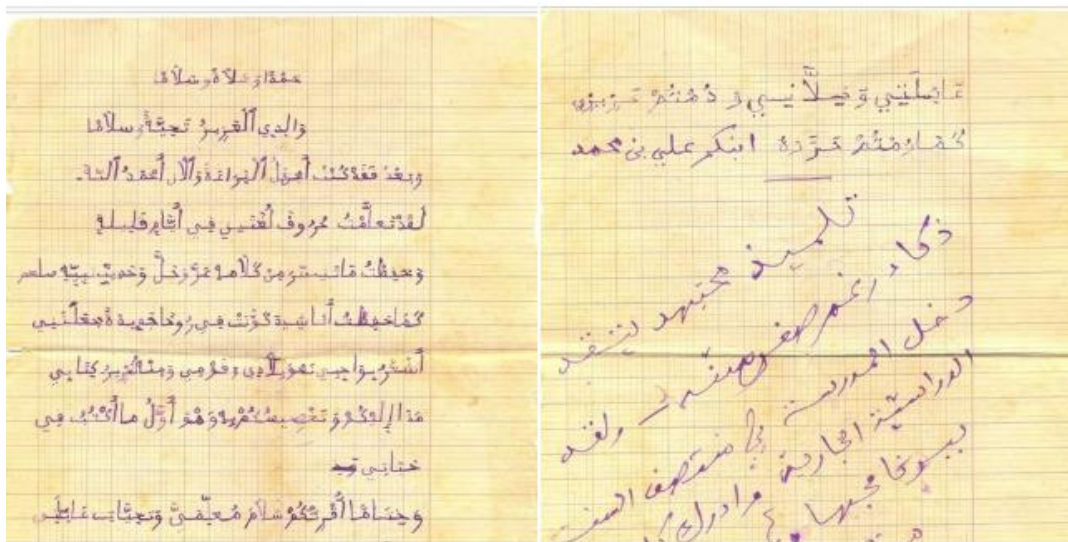 حمدا وصلاة وسلاما
والدي العزيز تحية وسلاما
وبعد فقد كنت أجهل القراءة والآن أحمد الله.
لقد تعلمت حروف لغتي في أيام قليلة
وحفظت ما تيسر من كلامه عز وجل وحديث نبيه صلعم
كما حفظت أناشيد كونت في روحا جديدة جعلتني
أشعر بواجبي نحو بلادي وقومي ومنه تحرير كتابي
هذا إليكم وهو أول ما أكتب في
حياتي
وختاما أقرئكم سلام معلمي وتحيات عائلتي
عائلتي وخلاني ودمتم
كما رمتم ابنكم علي بن محمد
تلميذ مجتهد يتقد
ذكاء رغم صغر سنه ولقد
دخل المدرسة في منتصف السنة
الدراسية الجارية